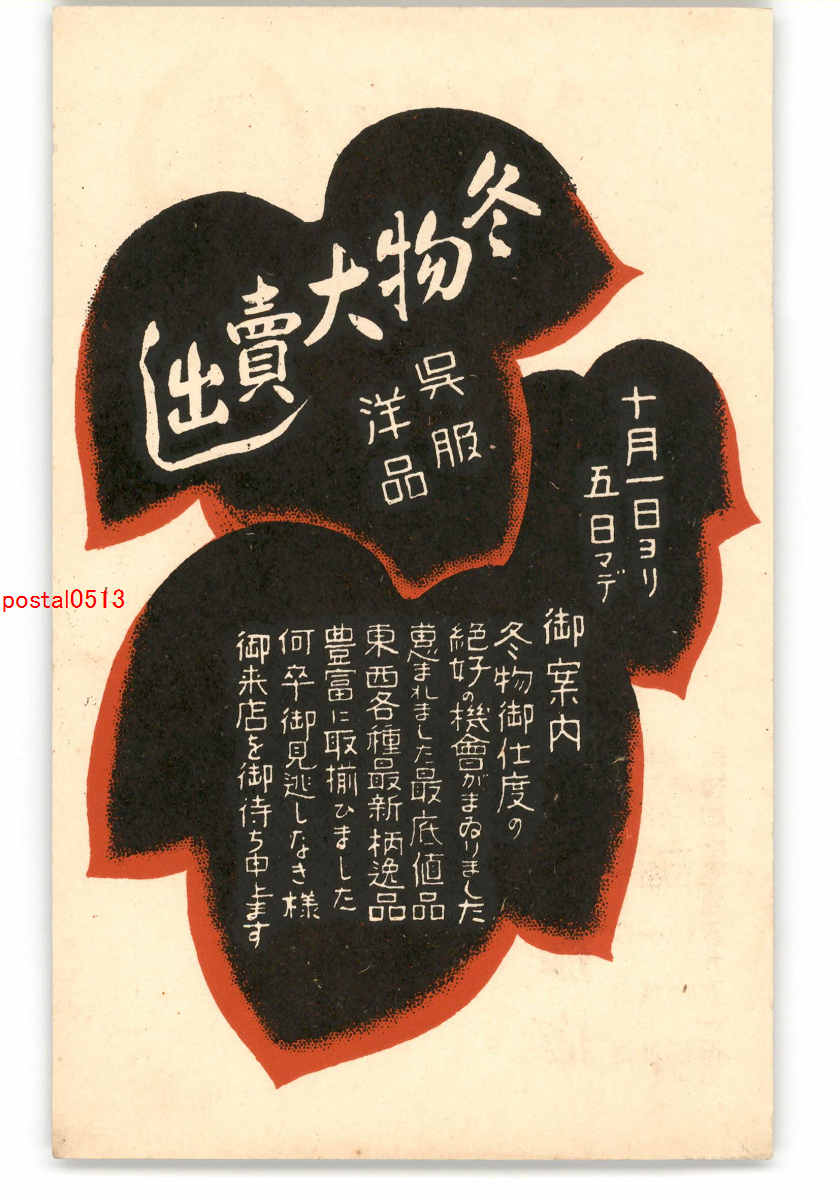 冬物大賣出し
呉服
洋品
十月一日ヨリ
五日マデ
御案内
冬物御仕度の
絶好の機會がまゐりました
恵まれました最底値品
東西各種最新柄逸品
豊富に取揃ひました
何卒御見逃しなき様
御来店を御待ち申上ます
postal0513